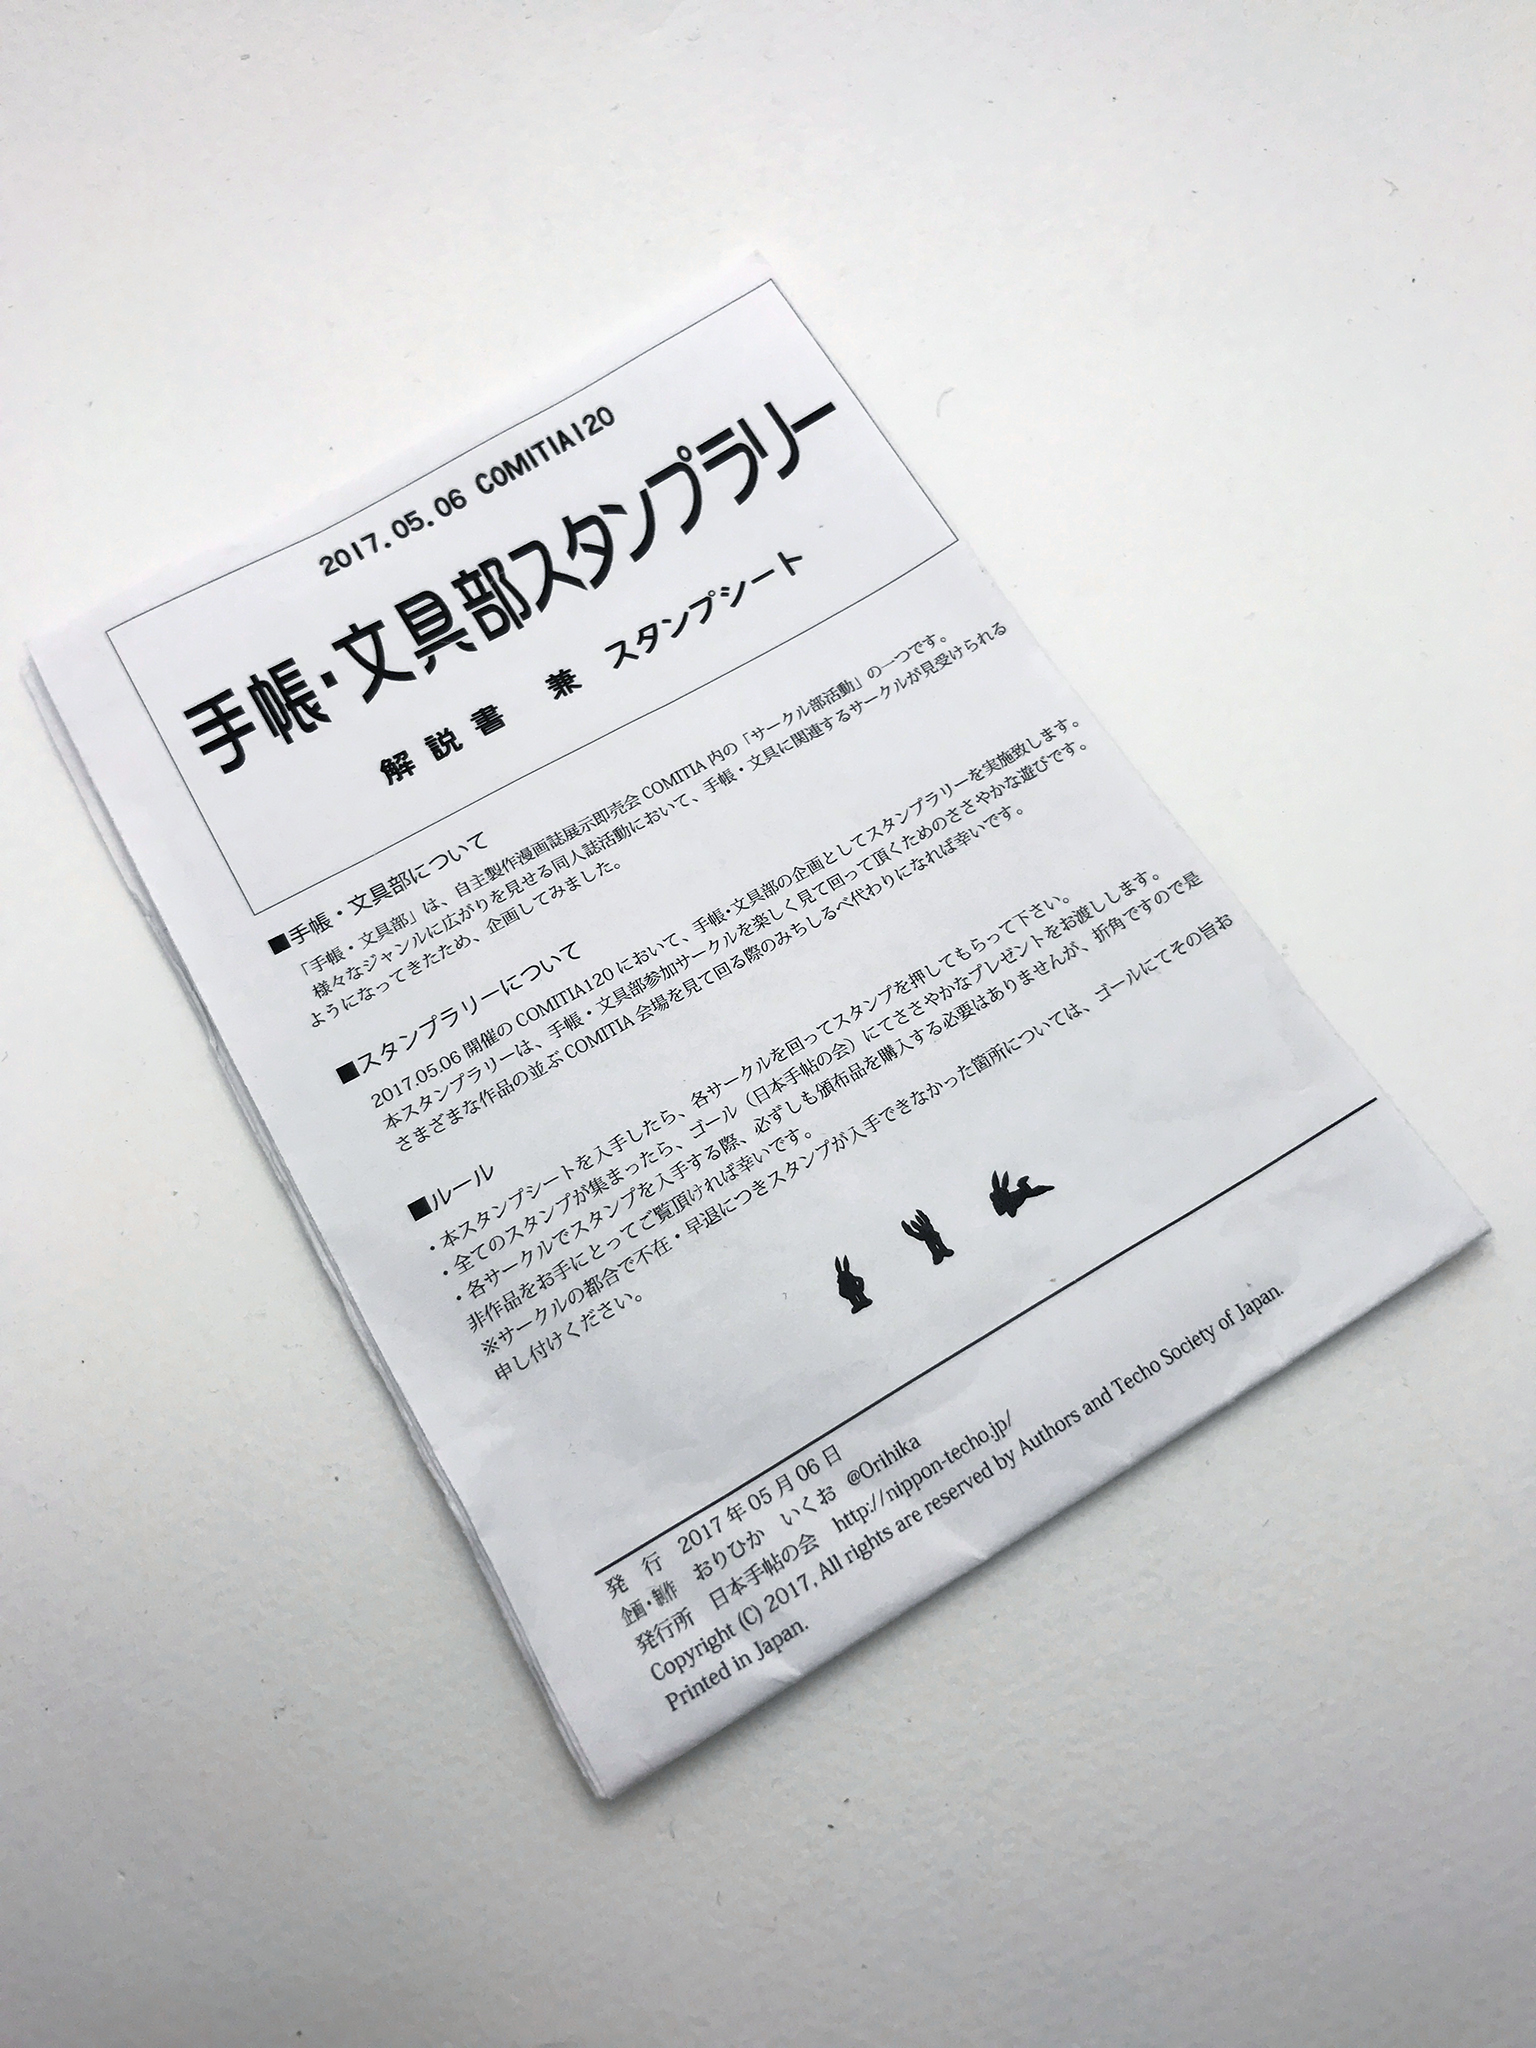 2017.05.06 COMITIA120
手帳・文具部スタンプラリー
解説書 兼 スタンプシート
■手帳・文具部について
「手帳・文具部」は、自主製作漫画誌展示即売会COMITIA内の「サークル部活動」の一つです。
様々なジャンルに広がりを見せる同人誌活動において、手帳・文具に関連するサークルが見受けられる
ようになってきたため、企画してみました。
■スタンプラリーについて
2017.05.06開催のCOMITIA120において、手帳・文具部の企画としてスタンプラリーを実施致します。
本スタンプラリーは、手帳・文具部参加サークルを楽しく見て回って頂くためのささやかな遊びです。
さまざまな作品の並ぶCOMITIA会場を見て回る際のみちしるべ代わりになれば幸いです。
■ルール
・本スタンプシートを入手したら、各サークルを回ってスタンプを押してもらって下さい。
・全てのスタンプが集まったら、ゴール（日本手帖の会）にてささやかなプレゼントをお渡しします。
・各サークルでスタンプを入手する際、必ずしも頒布品を購入する必要はありませんが、折角ですので是
非作品をお手にとってご覧頂ければ幸いです。
※サークルの都合で不在・早退につきスタンプが入手できなかった箇所については、ゴールにてその旨お
申し付けください。
発 行 2017年05月06日
企画・制作 おりひか いくお @Orihika
発行所 日本手帖の会 http://nippon-techo.jp/
Copyright (C) 2017, All rights are reserved by Authors and Techo Society of Japan.
Printed in Japan.